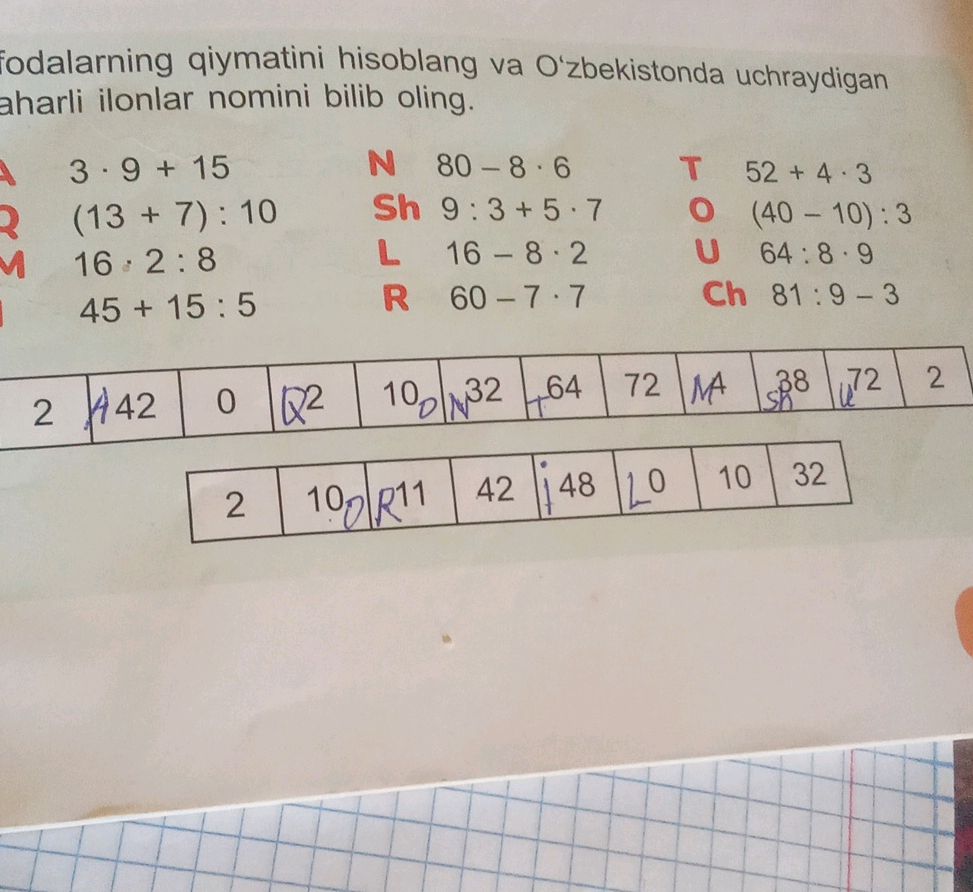 fodalarning qiymatini hisoblang va Oʻzbekistonda uchraydigan
aharli ilonlar nomini bilib oling.
A 3 · 9 + 15 N 80 – 8 · 6 T 52 + 4 · 3
Q (13 + 7) : 10 Sh 9 : 3 + 5 · 7 O (40 – 10) : 3
M 16 · 2 : 8 L 16 – 8 · 2 U 64 : 8 · 9
I 45 + 15 : 5 R 60 – 7 · 7 Ch 81 : 9 – 3
2 A 42 0 Q 2 10 O N 32 T 64 72 M 4 Sh 38 U 72 2
2 10 O R 11 42 i 48 L 0 10 32